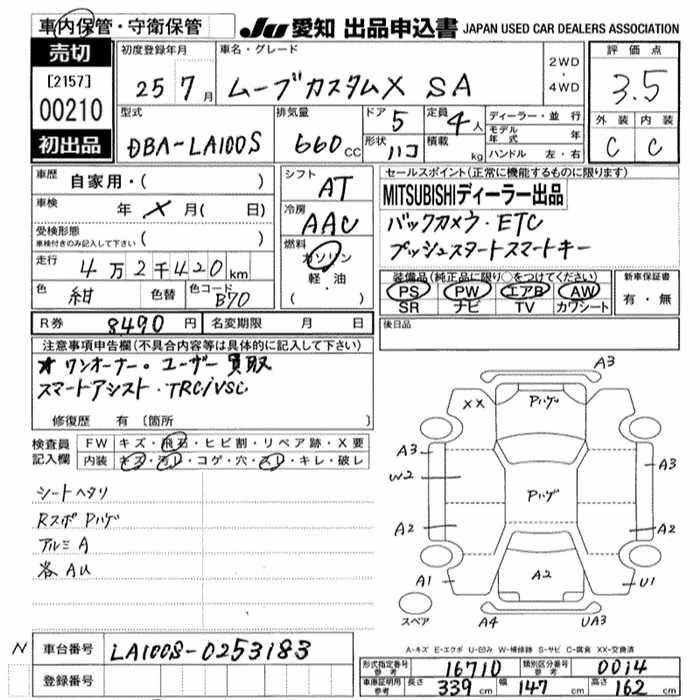 車内保管・守衛保管
JU 愛知 出品申込書 JAPAN USED CAR DEALERS ASSOCIATION
売切
[2157]
00210
初出品
初度登録年月
25年 7月
車名・グレード
ムーブカスタムX SA
2WD
・
4WD
評価点
3.5
外装 内装
C C
型式
DBA-LA100S
排気量
660cc
ドア 5
形状 ハコ
定員 4人
積載 kg
ディーラー・並行
モデル年式 年
ハンドル 左・右
車歴 自家用・( )
車検 年 × 月( 日)
受検形態
車検付きのみ記入して下さい ( )
走行 4万2千420km
色 紺 色替 色コード B70
シフト AT
冷房 AAC
燃料
ガソリン
軽・油
( )
セールスポイント(正常に機能するものに限ります)
MITSUBISHIディーラー出品
バックカメラ・ETC
プッシュスタートスマートキー
装備品(純正品に限り○をつけてください)
PS PW エアB AW
SR ナビ TV カワシート
新車保証書
有・無
R券 8490円 名変期限 月 日
後日品
注意事項申告欄(不具合内容等は具体的に記入して下さい)
★ワンオーナー・ユーザー買取
スマートアシスト・TRC/VSC
修復歴 有 〔箇所 〕
検査員記入欄
FW キズ・飛石・ヒビ割・リペア跡・X要
内装 キズ・汚レ・コゲ・穴・スレ・キレ・破レ
シートヘタリ
Rスポ Pハゲ
アルミ A
各 AU
A3
XX Pハゲ
A3 A3
W2 Pハゲ
A2 A2
A1 A2 U1
スペア A4 UA3
A-キズ E-エクボ U-凹み W-補修跡 S-サビ C-腐食 XX-交換済
N 車台番号 LA100S-0253183
登録番号
形式指定番号 参考 16710 類別区分番号 参考 0014
車庫証明用 参考 長さ 339cm 幅 147cm 高さ 162cm